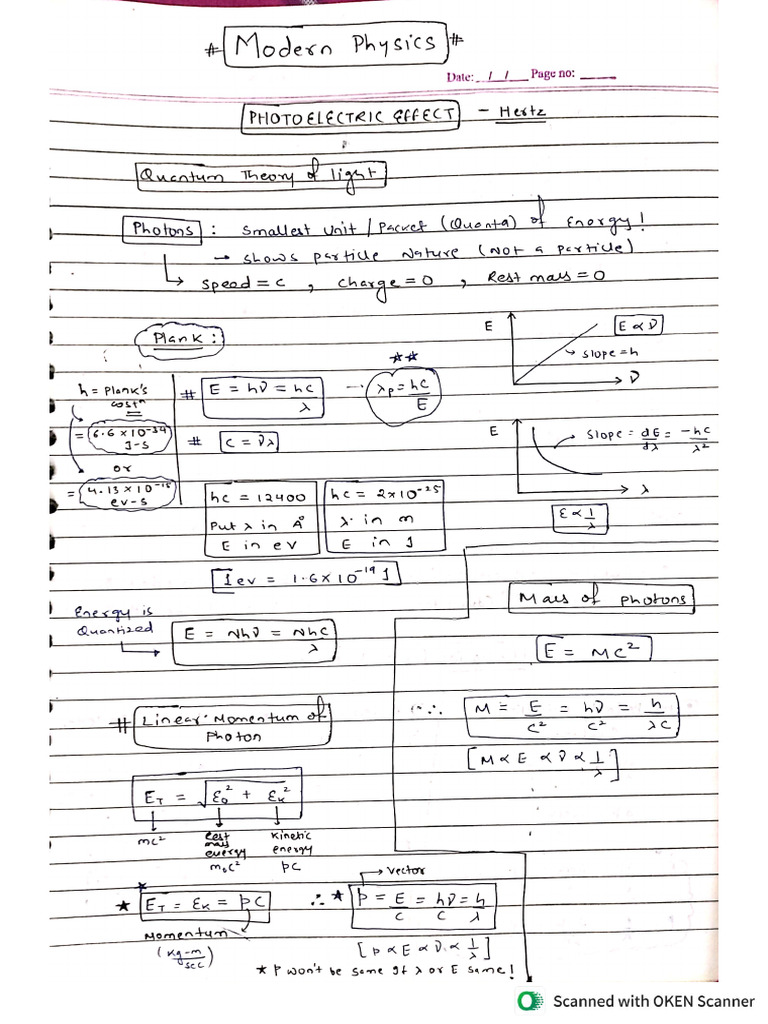 # Modern Physics #
Date: _/_/_ Page no: ____
PHOTOELECTRIC EFFECT - Hertz
Quantum Theory of light
Photons : Smallest unit / Packet (Quanta) of Energy!
→ shows particle Nature (Not a particle)
↳ speed = c , charge = 0 , Rest mass = 0
Plank :
h = Plank's
costⁿ
= 6.6 × 10⁻³⁴
J-s
or
= 4.13 × 10⁻¹⁵
ev-s
# E = hν = hc/λ
** λp = hc/E
# c = νλ
hc = 12400
Put λ in A°
E in ev
hc = 2×10⁻²⁵
λ in m
E in J
1 ev = 1.6 × 10⁻¹⁹ J
E
E ∝ ν
→ slope = h
ν
E
slope = dE/dλ = -hc/λ²
λ
E ∝ 1/λ
Energy is
Quantized
E = Nhν = Nhc/λ
Mass of photons
E = mc²
∴ M = E/c² = hν/c² = h/λc
[M ∝ E ∝ ν ∝ 1/λ]
# Linear Momentum of
Photon
E_T = √E₀² + E_K²
mc²
Rest
mass
energy
m₀c²
kinetic
energy
pc
* * E_T = E_K = pc
Momentum
(kg-m/sec)
→ vector
∴ * p = E/c = hν/c = h/λ
[p ∝ E ∝ ν ∝ 1/λ]
* p won't be same If λ or E same!
Scanned with OKEN Scanner